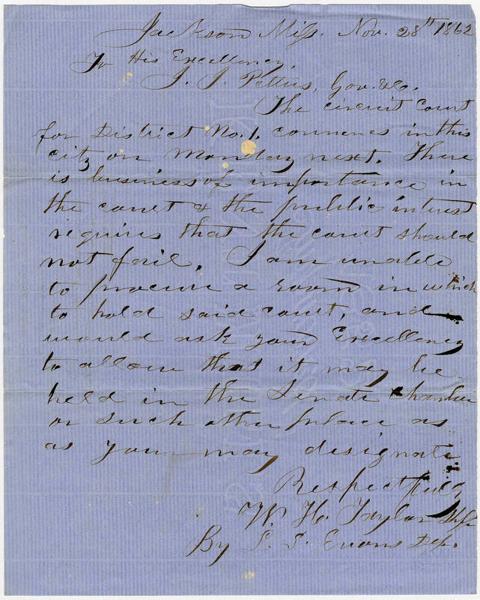 Jackson Miss. Nov. 28th 1862
To His Excellency,
J. J. Pettus, Gov. &c.
The circuit court
for District No. 1, convenes in this
city on Monday next. There
is business of importance in
the court & the public interest
requires that the court should
not fail. I am unable
to procure a room in which
to hold said court, and
would ask your Excellency
to allow that it may be
held in the Senate chamber
or such other place as
as you may designate
Respectfully
W. H. Taylor Shff
By S. S. Evans D.S.